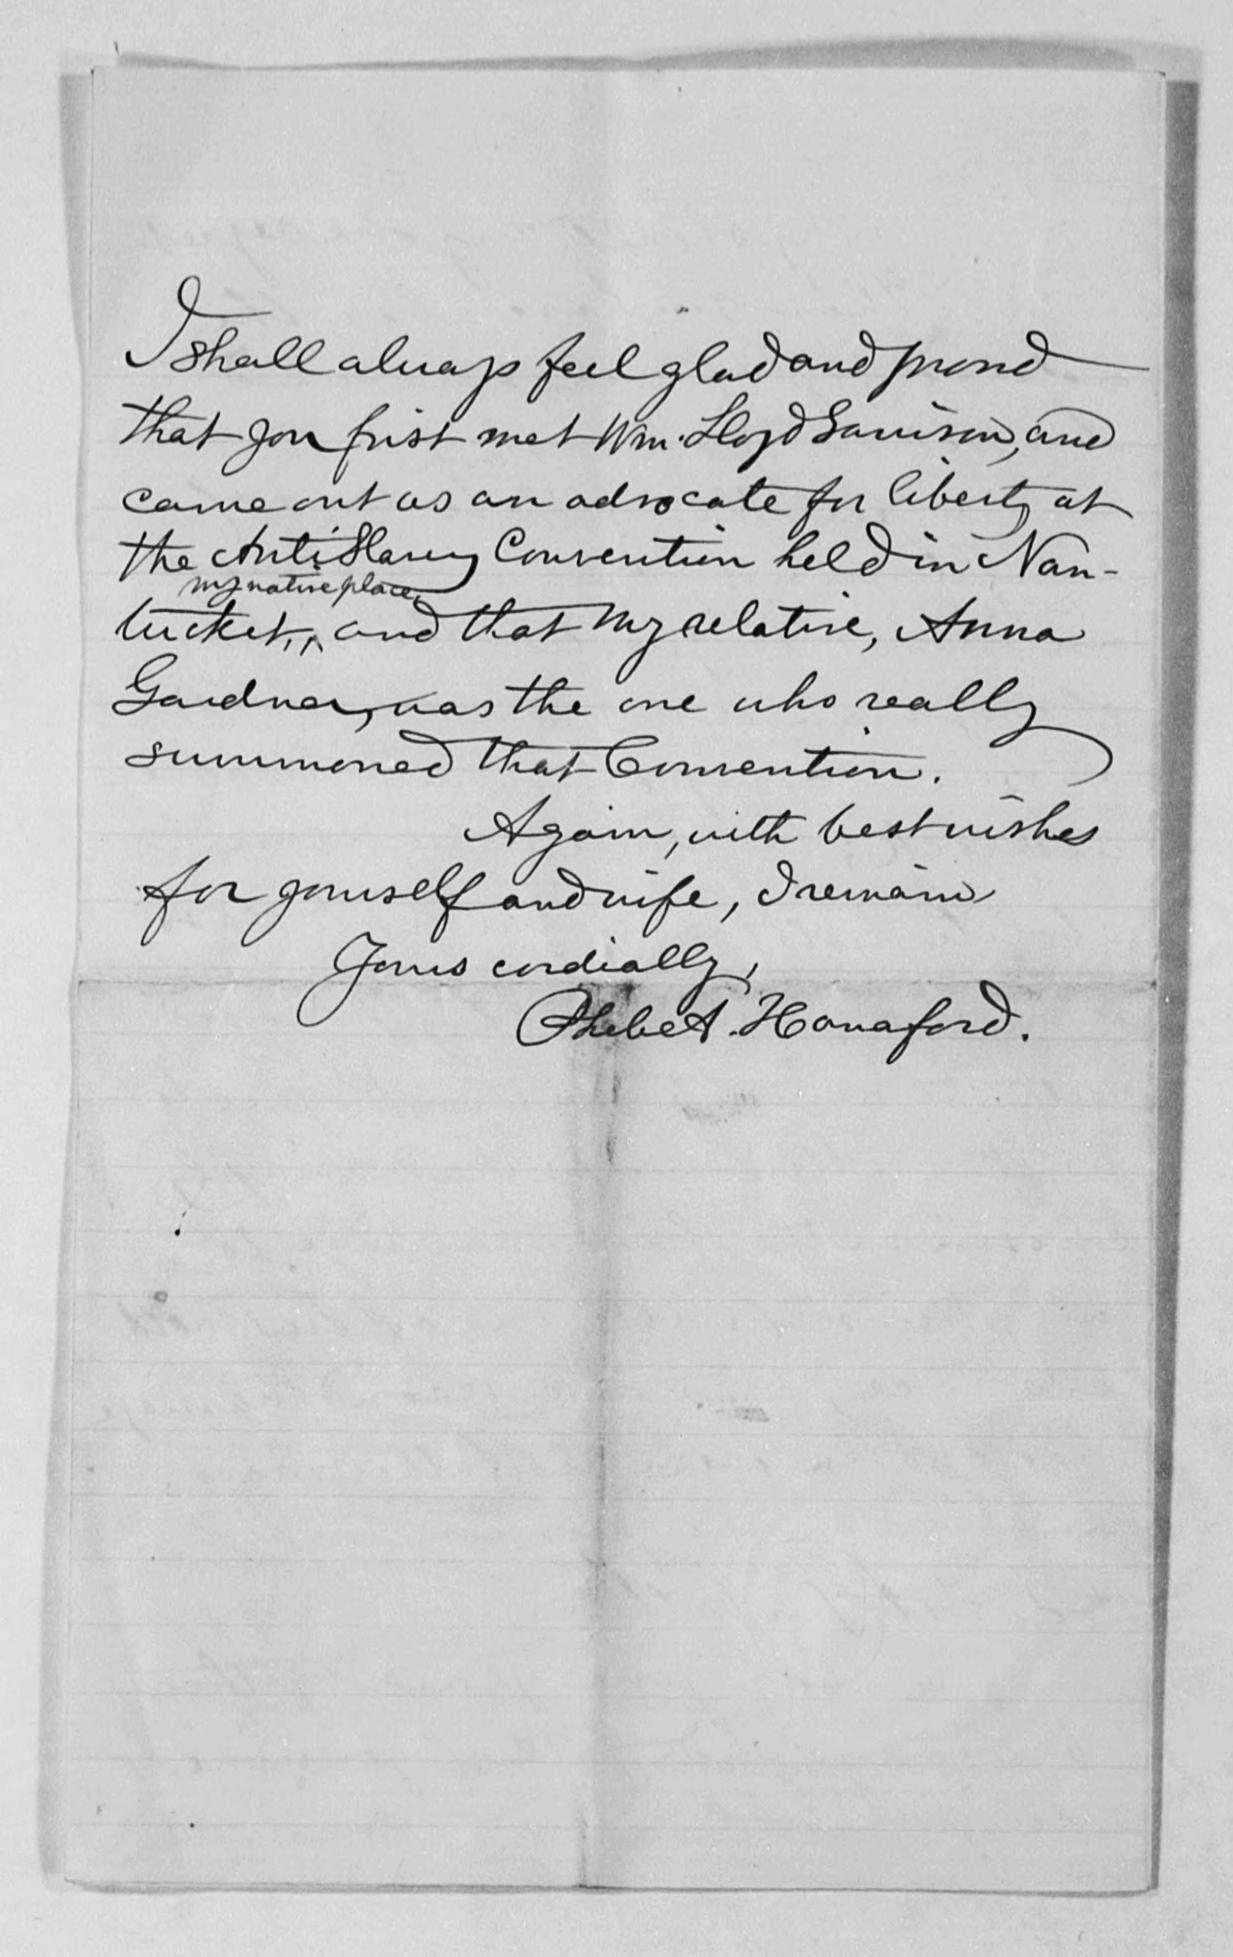 I shall always feel glad and proud
that you first met Wm. Lloyd Garrison, and
came out as an advocate for liberty at
the Anti Slavery Convention held in Nan-
my native place,
tucket, ^ and that my relative, Anna
Gardner, was the one who really
summoned that Convention.
Again, with best wishes
for yourself and wife, I remain
Yours cordially,
Phebe A. Hanaford.